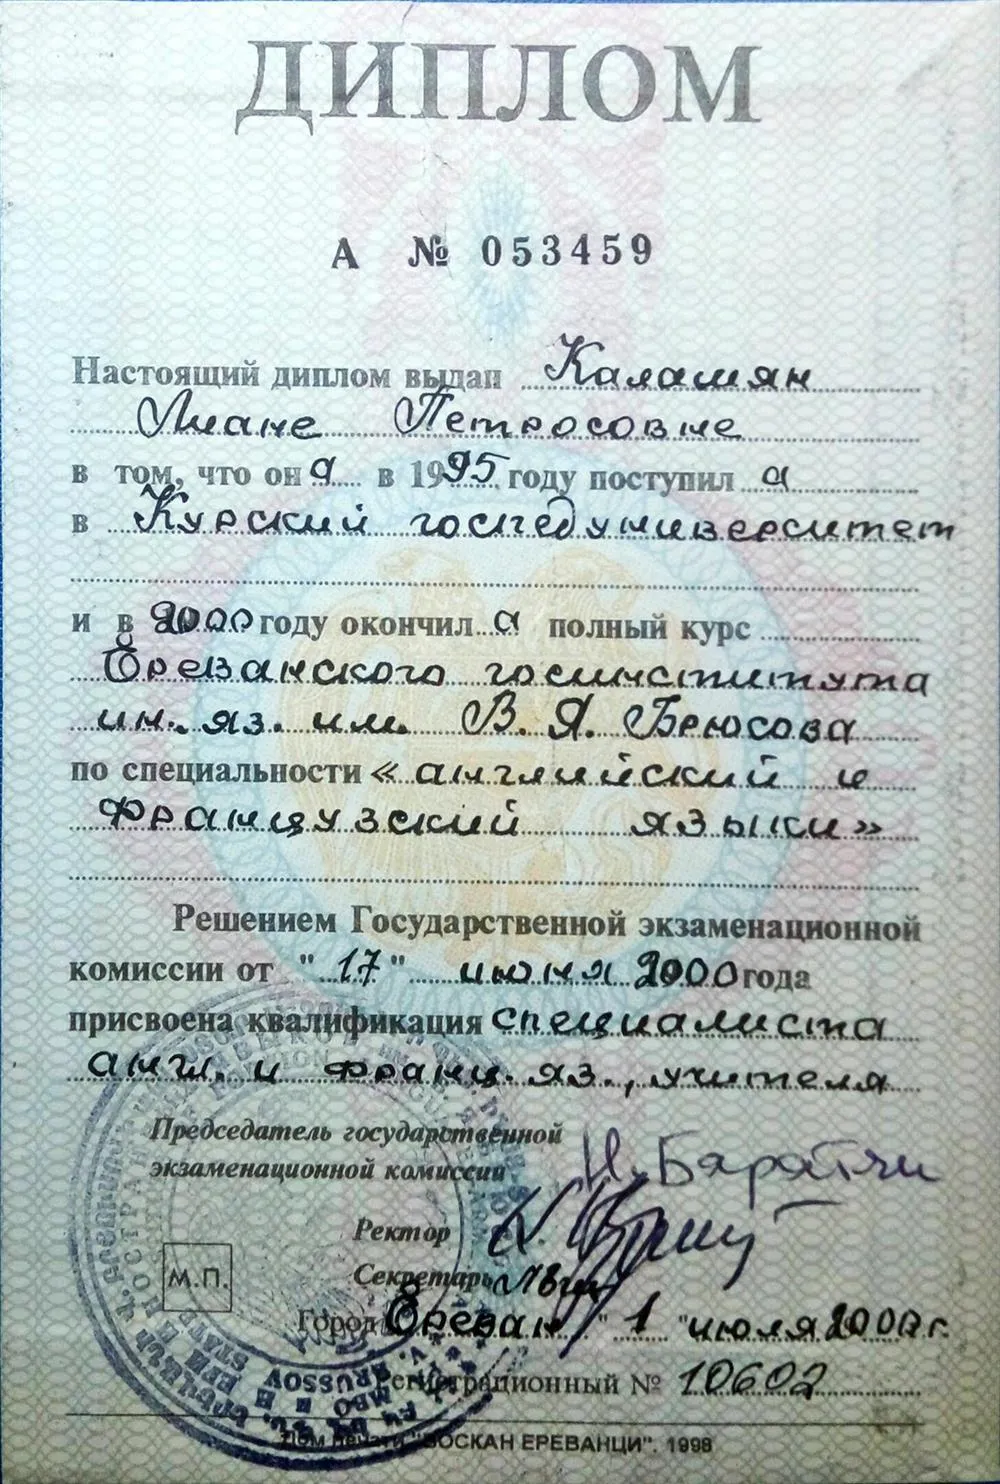 ДИПЛОМ
А № 053459
Настоящий диплом выдан Калашян
Лиане Петросовне
в том, что она в 1995 году поступила
в Курский госпедуниверситет
и в 2000 году окончила полный курс
Ереванского госинститута
ин. яз. им. В. Я. Брюсова
по специальности «английский и
французский языки»
Решением Государственной экзаменационной
комиссии от "17" июня 2000 года
присвоена квалификация специалиста
англ. и франц. яз., учителя
Председатель государственной
экзаменационной комиссии
Ректор
Секретарь
М.П.
Город Ереван "1" июля 2000 г.
Регистрационный № 10602
Дом печати "ВОСКАН ЕРЕВАНЦИ". 1998